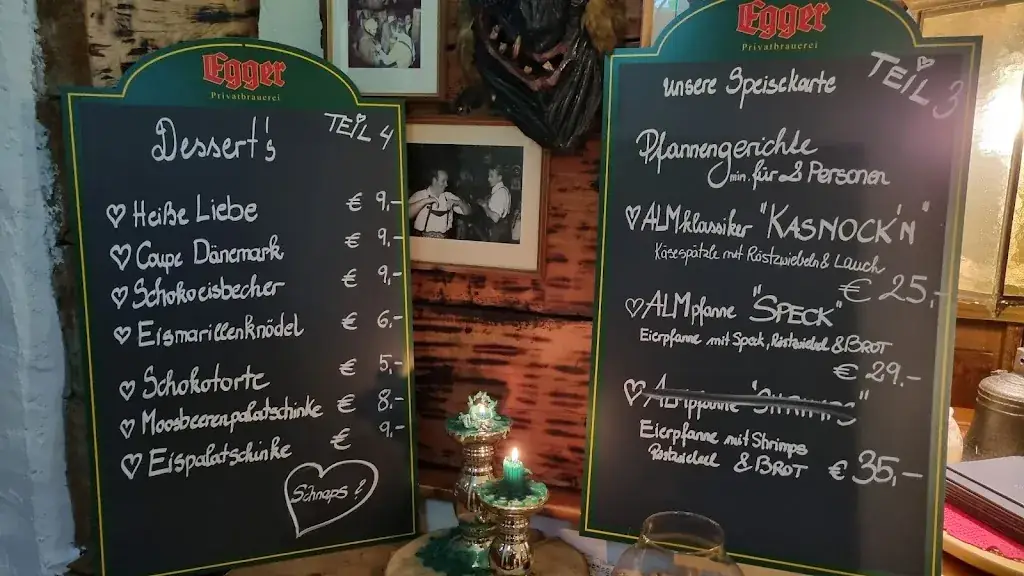 Egger
Privatbrauerei
Dessert's
TEIL 4
♡ Heiße Liebe € 9,-
♡ Coupe Dänemark € 9,-
♡ Schokoeisbecher € 9,-
♡ Eismarillenknödel € 6,-
♡ Schokotorte € 5,-
♡ Moosbeerenpalatschinke € 8,-
♡ Eispalatschinke € 9,-
Schnaps?
Egger
Privatbrauerei
unsere Speisekarte
TEIL 3
Pfannengerichte
min. für 2 Personen
♡ ALMklassiker "KASNOCK'N"
Käsespätzle mit Röstzwiebeln & Lauch
€ 25,-
♡ ALMpfanne "SPECK"
Eierpfanne mit Speck, Röstzwiebel & BROT
€ 29.-
♡ ALMpfanne "SHRIMPS"
Eierpfanne mit Shrimps
Röstzwiebel & BROT € 35,-